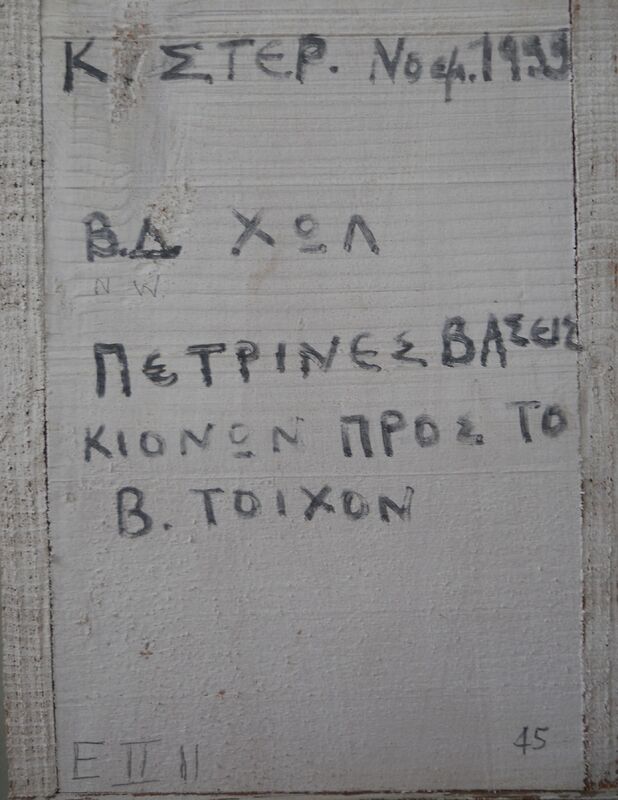 Κ. ΣΤΕΡ. Νοεμ. 1999
Β.Δ ΧΩΛ
N W.
ΠΕΤΡΙΝΕΣ ΒΑΣΕΙΣ
ΚΙΟΝΩΝ ΠΡΟΣ ΤΟ
Β. ΤΟΙΧΟΝ
45
E II 11